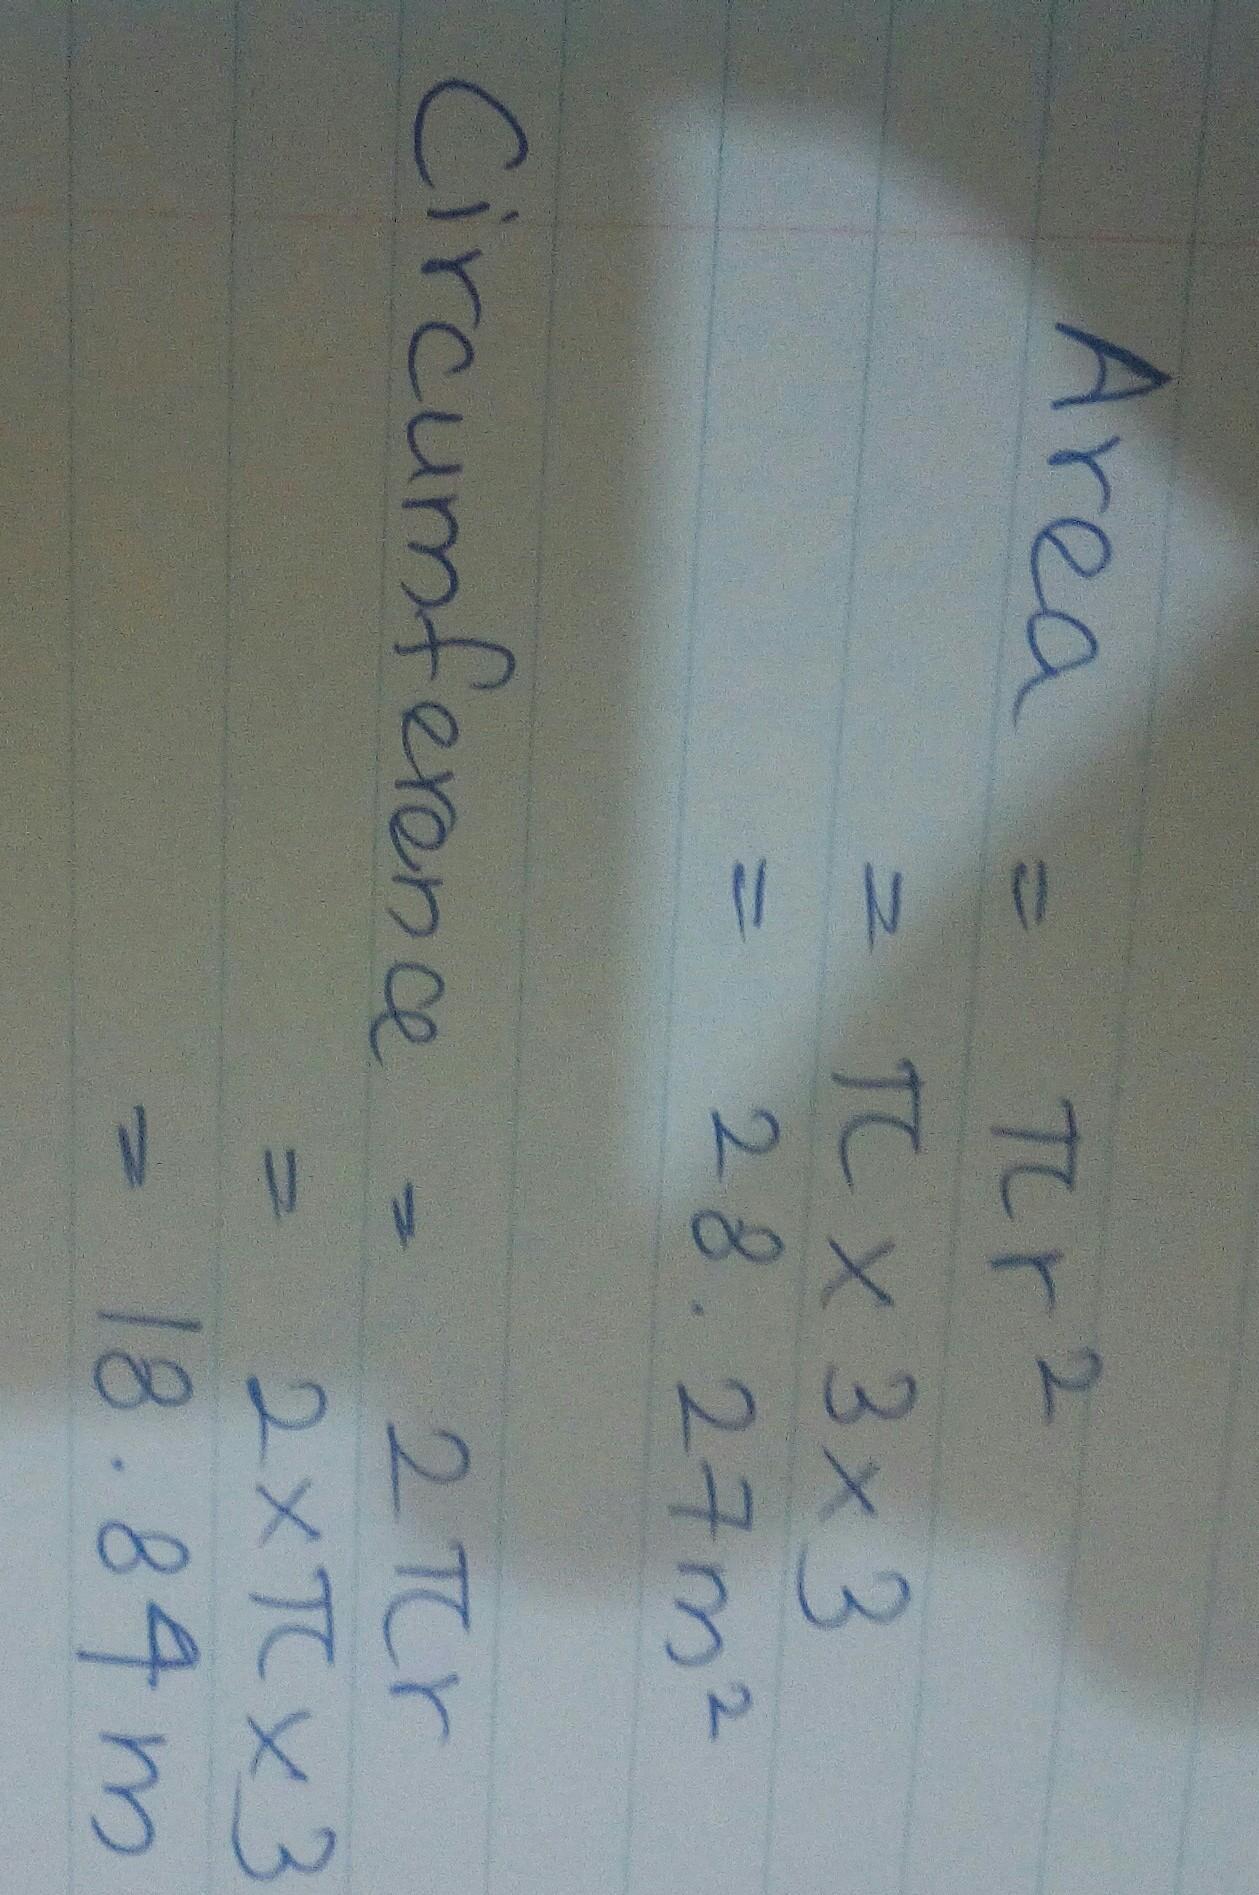 Area = πr²
= π x 3 x 3
= 28.27m²
Circumference = 2πr
= 2xπx3
= 18.84m